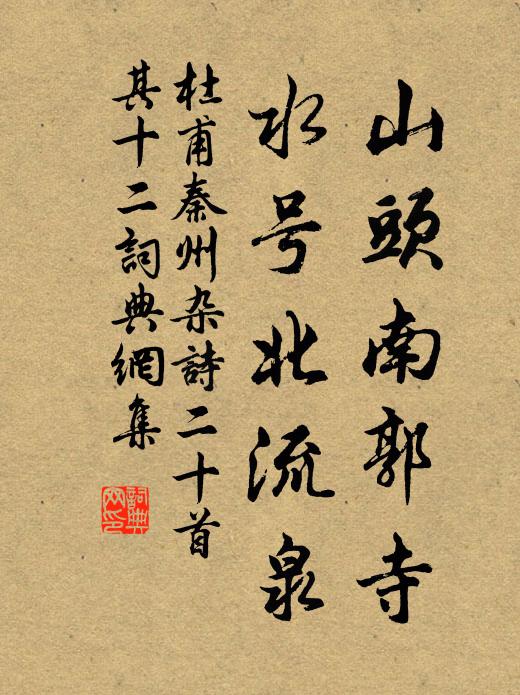 山頭南郭寺
水号北流泉
杜甫秦州杂詩二十首
其十二詞典網集
詞典
网印